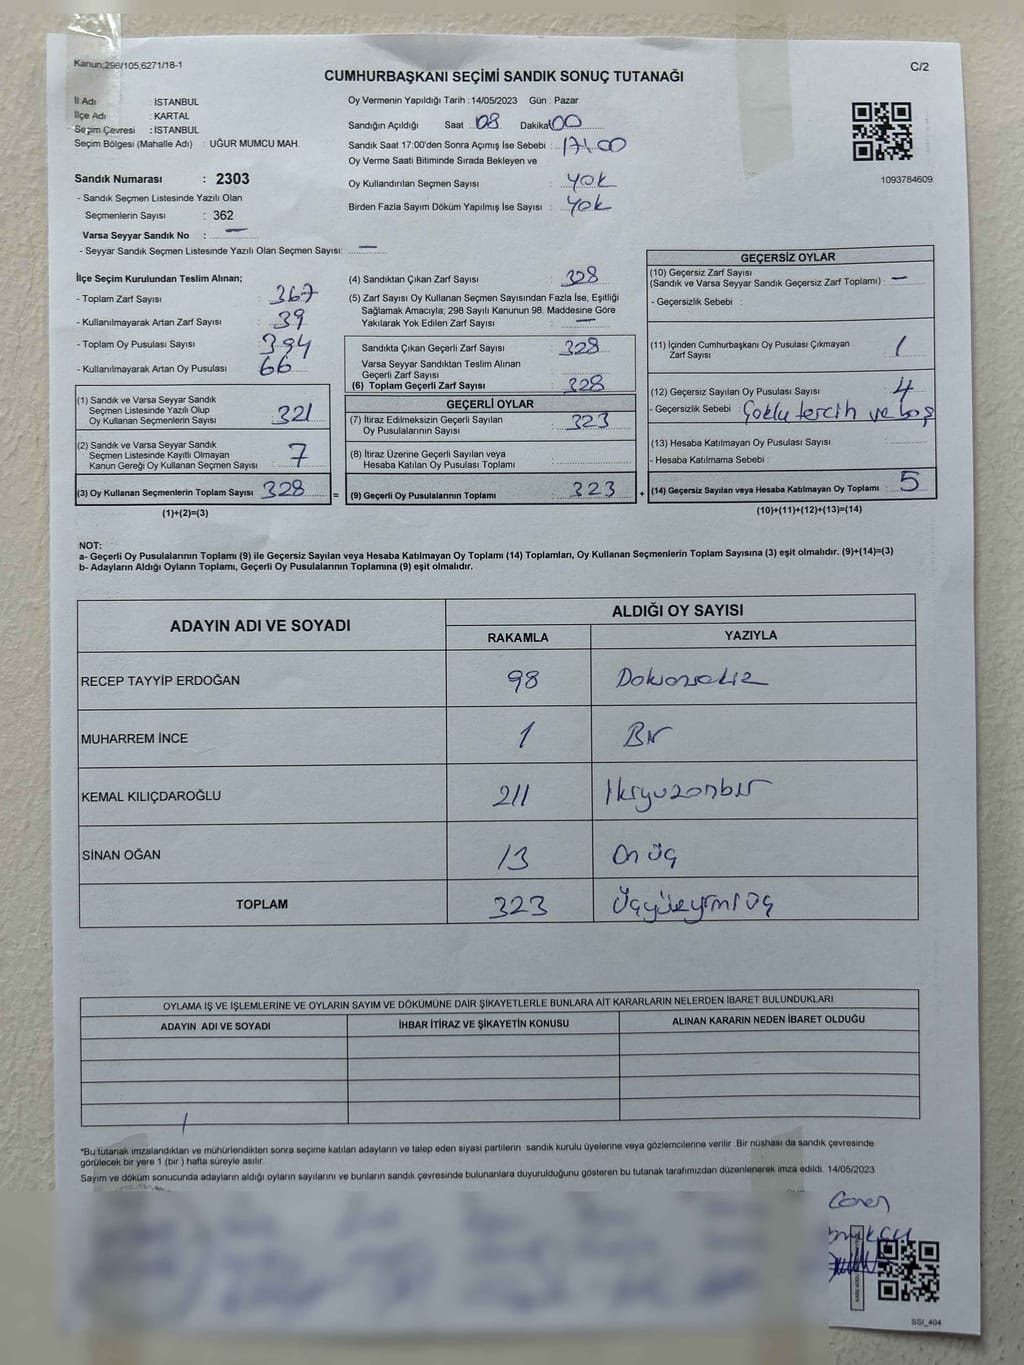 Kanun;298/105,6271/18-1
C/2
CUMHURBAŞKANI SEÇİMİ SANDIK SONUÇ TUTANAĞI
İl Adı : İSTANBUL
İlçe Adı : KARTAL
Seçim Çevresi : İSTANBUL
Seçim Bölgesi (Mahalle Adı) : UĞUR MUMCU MAH.
Sandık Numarası : 2303
- Sandık Seçmen Listesinde Yazılı Olan
Seçmenlerin Sayısı : 362
Varsa Seyyar Sandık No : —
- Seyyar Sandık Seçmen Listesinde Yazılı Olan Seçmen Sayısı: —
Oy Vermenin Yapıldığı Tarih : 14/05/2023 Gün : Pazar
Sandığın Açıldığı Saat : 08 Dakika 00
Sandık Saat 17:00'den Sonra Açımış İse Sebebi : 17:00
Oy Verme Saati Bitiminde Sırada Bekleyen ve
Oy Kullandırılan Seçmen Sayısı : Yok
Birden Fazla Sayım Döküm Yapılmış İse Sayısı : Yok
1093784609
İlçe Seçim Kurulundan Teslim Alınan;
- Toplam Zarf Sayısı : 367
- Kullanılmayarak Artan Zarf Sayısı : 39
- Toplam Oy Pusulası Sayısı : 394
- Kullanılmayarak Artan Oy Pusulası : 66
(1) Sandık ve Varsa Seyyar Sandık
Seçmen Listesinde Yazılı Olup
Oy Kullanan Seçmenlerin Sayısı : 321
(2) Sandık ve Varsa Seyyar Sandık
Seçmen Listesinde Kayıtlı Olmayan
Kanun Gereği Oy Kullanan Seçmen Sayısı : 7
(3) Oy Kullanan Seçmenlerin Toplam Sayısı : 328 =
(1)+(2)=(3)
(4) Sandıktan Çıkan Zarf Sayısı : 328
(5) Zarf Sayısı Oy Kullanan Seçmen Sayısından Fazla İse, Eşitliği
Sağlamak Amacıyla; 298 Sayılı Kanunun 98. Maddesine Göre
Yakılarak Yok Edilen Zarf Sayısı : —
Sandıkta Çıkan Geçerli Zarf Sayısı : 328
Varsa Seyyar Sandıktan Teslim Alınan
Geçerli Zarf Sayısı :
(6) Toplam Geçerli Zarf Sayısı : 328
GEÇERLİ OYLAR
(7) İtiraz Edilmeksizin Geçerli Sayılan
Oy Pusulalarının Sayısı : 323
(8) İtiraz Üzerine Geçerli Sayılan veya
Hesaba Katılan Oy Pusulası Toplamı :
(9) Geçerli Oy Pusulalarının Toplamı : 323 +
GEÇERSİZ OYLAR
(10) Geçersiz Zarf Sayısı
(Sandık ve Varsa Seyyar Sandık Geçersiz Zarf Toplamı) : —
- Geçersizlik Sebebi :
(11) İçinden Cumhurbaşkanı Oy Pusulası Çıkmayan
Zarf Sayısı : 1
(12) Geçersiz Sayılan Oy Pusulası Sayısı : 4
- Geçersizlik Sebebi : Çoklu tercih ve boş
(13) Hesaba Katılmayan Oy Pusulası Sayısı :
- Hesaba Katılmama Sebebi :
(14) Geçersiz Sayılan veya Hesaba Katılmayan Oy Toplamı : 5
(10)+(11)+(12)+(13)=(14)
NOT:
a- Geçerli Oy Pusulalarının Toplamı (9) ile Geçersiz Sayılan veya Hesaba Katılmayan Oy Toplamı (14) Toplamları, Oy Kullanan Seçmenlerin Toplam Sayısına (3) eşit olmalıdır. (9)+(14)=(3)
b- Adayların Aldığı Oyların Toplamı, Geçerli Oy Pusulalarının Toplamına (9) eşit olmalıdır.
ADAYIN ADI VE SOYADI ALDIĞI OY SAYISI
RAKAMLA YAZIYLA
RECEP TAYYİP ERDOĞAN 98 Doksansekiz
MUHARREM İNCE 1 Bir
KEMAL KILIÇDAROĞLU 211 İkiyüzonbir
SİNAN OĞAN 13 On üç
TOPLAM 323 Üçyüzyirmi üç
OYLAMA İŞ VE İŞLEMLERİNE VE OYLARIN SAYIM VE DÖKÜMÜNE DAİR ŞİKAYETLERLE BUNLARA AİT KARARLARIN NELERDEN İBARET BULUNDUKLARI
ADAYIN ADI VE SOYADI İHBAR İTİRAZ VE ŞİKAYETİN KONUSU ALINAN KARARIN NEDEN İBARET OLDUĞU
*Bu tutanak imzalandıktan ve mühürlendikten sonra seçime katılan adayların ve talep eden siyasi partilerin sandık kurulu üyelerine veya gözlemcilerine verilir. Bir nüshası da sandık çevresinde
görülecek bir yere 1 (bir) hafta süreyle asılır.
Sayım ve döküm sonucunda adayların aldığı oyların sayılarını ve bunların sandık çevresinde bulunanlara duyurulduğunu gösteren bu tutanak tarafımızdan düzenlenerek imza edildi. 14/05/2023
SSI_404